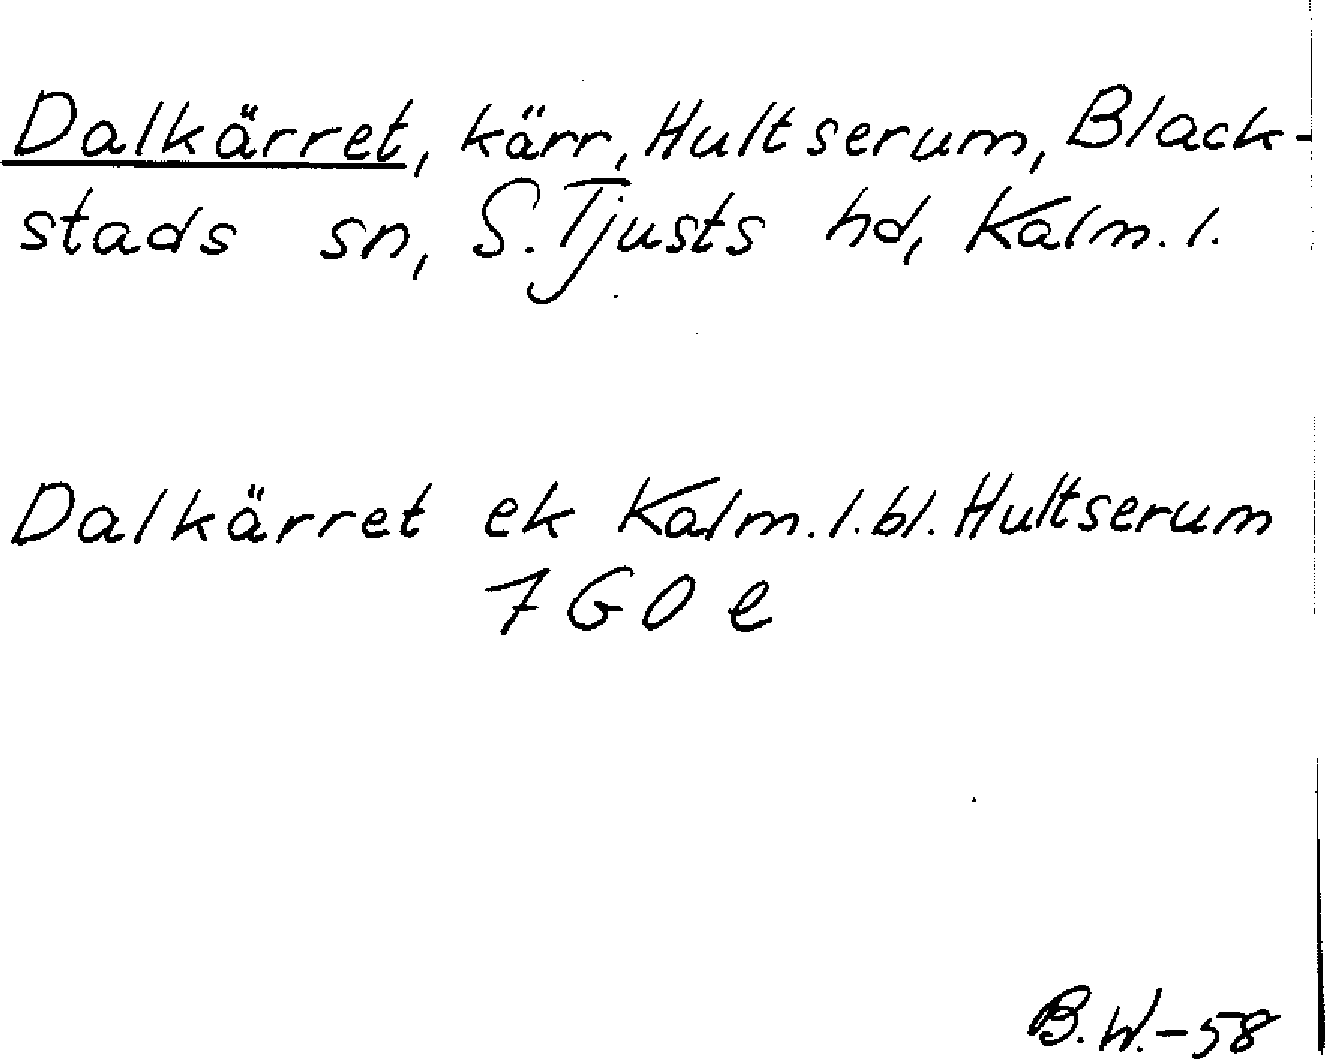 Dalkärret, kärr, Hultserum, Black-
stads sn, S. Tjusts hd, Kalm. l.
Dalkärret ek Kalm. l. bl. Hultserum
7 G O e
B.W.-58